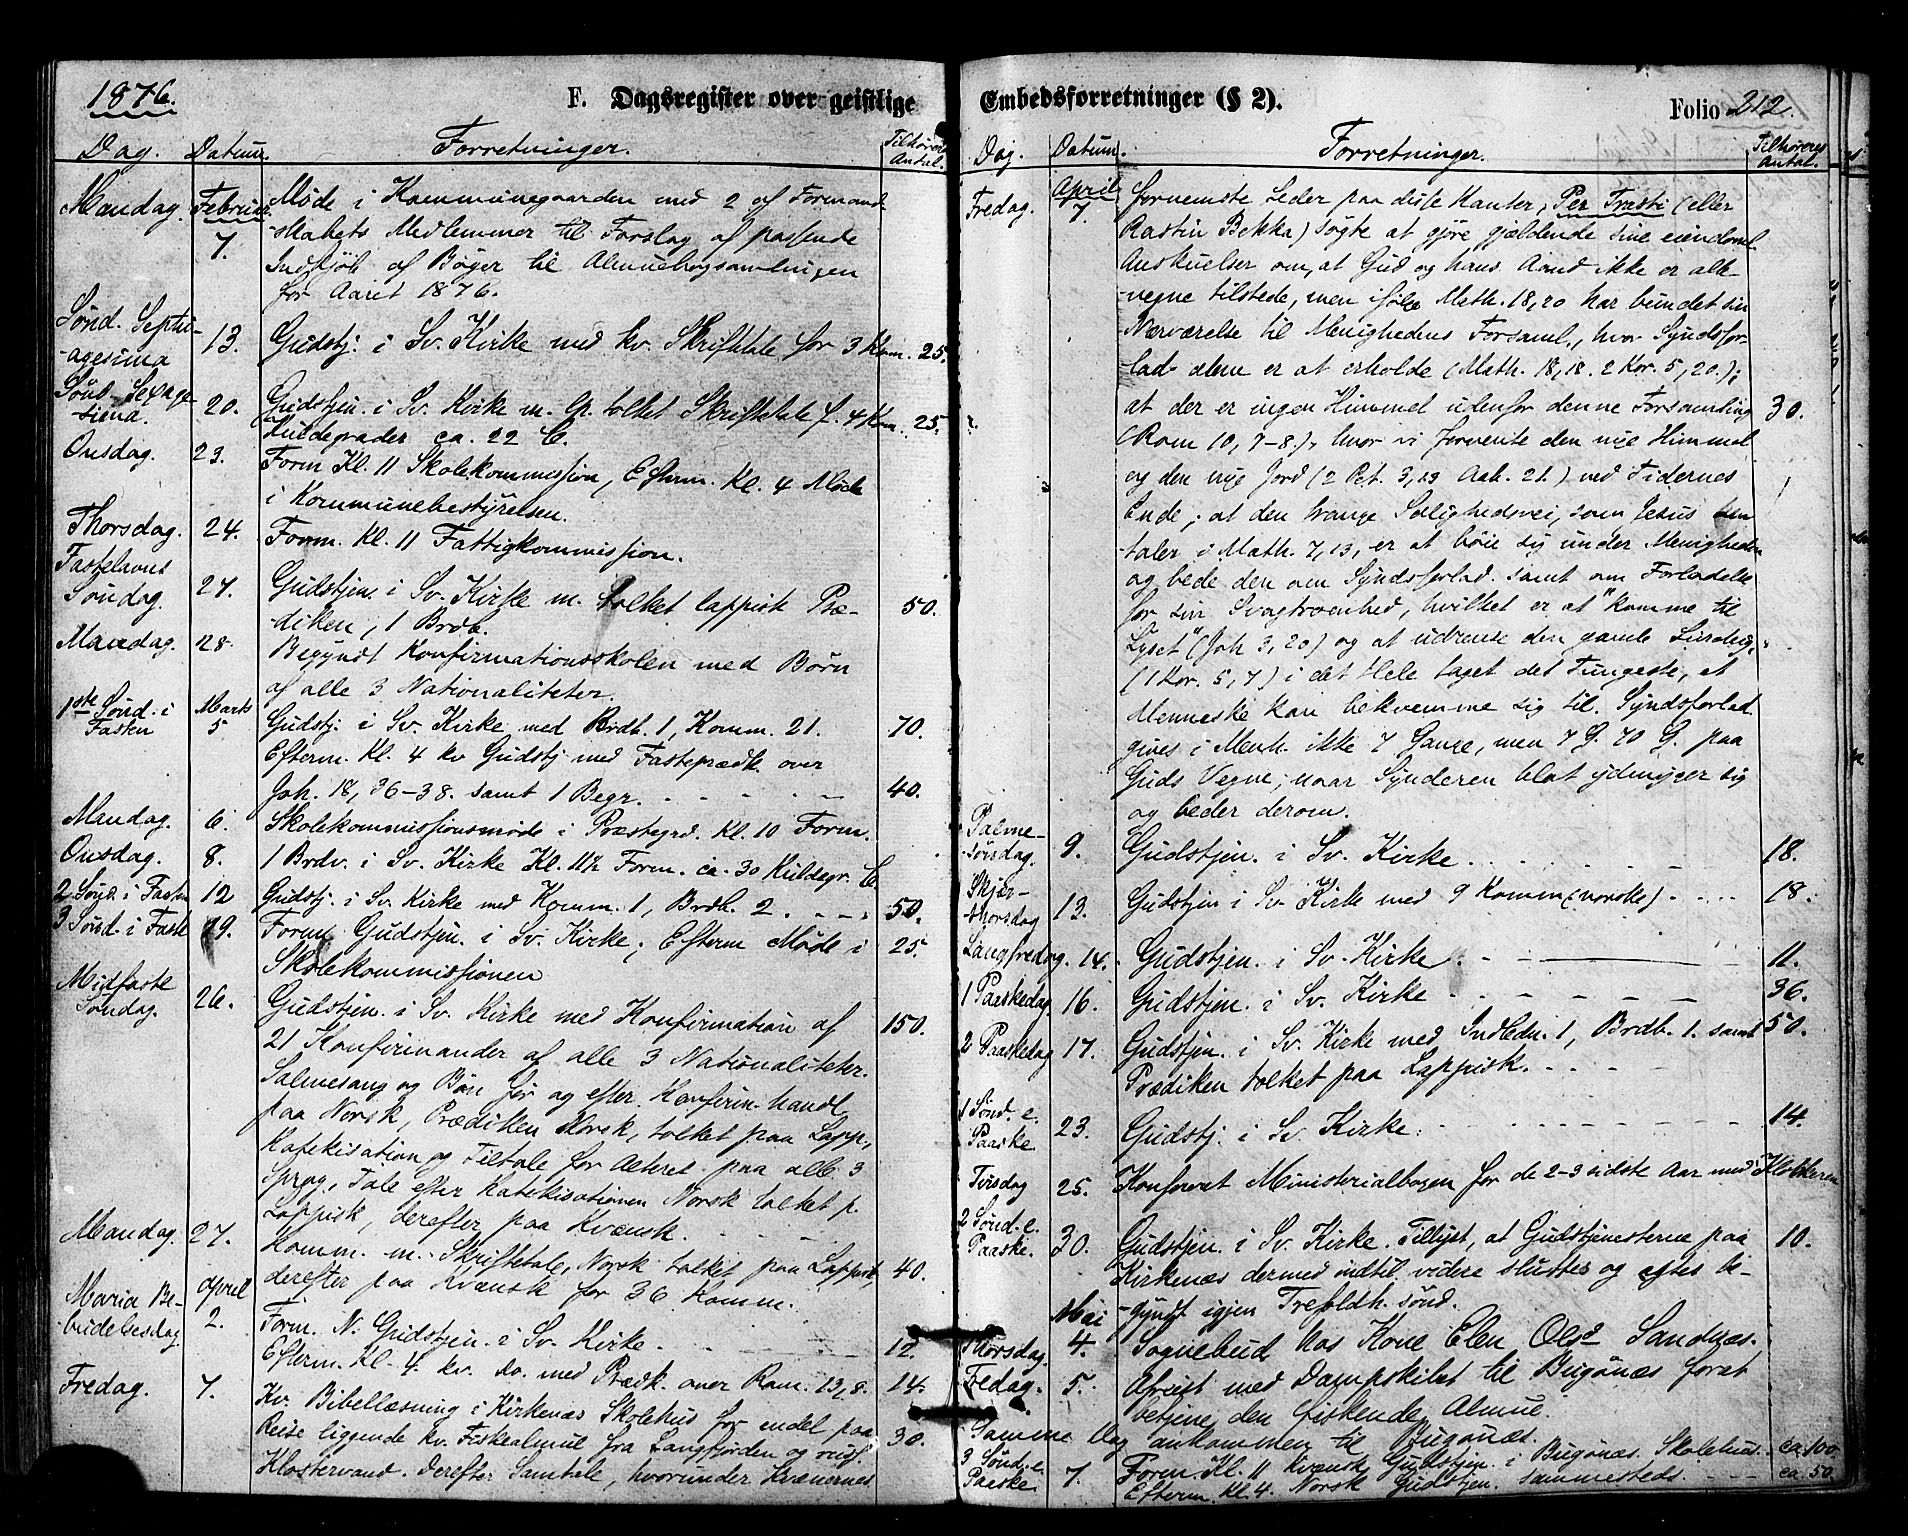 1876.
F. Dagsregister over geistlige
Dag. Datum. Forretninger. Tilhøreres Antal.
Mandag Februar 7. Møde i Kommunegaarden med 2 af Formand-
-skabets Medlemmer til Forslag af passende
Indkjøb af Bøger til Almuebogsamlingen
for Aaret 1876.
Sønd. Septu-
-agesima 13. Gudstj. i Sv. Kirke med kv. Skriftetale for 3 Kom. 25.
Sønd. Sexage-
sima. 20. Gudstjen. i Sv. Kirke m. lp. tolket Skriftetale f. 4 Kom. 25.
Kuldegrader ca. 22 C.
Onsdag. 23. Form Kl. 11 Skolekommission, Efterm. Kl. 4 Møde
i Kommunebestyrelsen.
Thorsdag. 24. Form. Kl. 11 Fattigkommission.
Fastelavns
Søndag. 27. Gudstjen. i Sv. Kirke m. tolket lappisk Præ- 50.
diken, 1 Brdb.
Mandag. 28. Begyndt Konfirmationsskolen med Børn
af alle 3 Nationaliteter.
1ste Sønd. i
Fasten Marts 5 Gudstj. i Sv. Kirke med Brdb. 1, Komm. 21. 70.
Efterm. Kl. 4 kv Gudstj med Fasteprædk. over
Joh. 18, 36-38. samt 1 Begr. 40.
Mandag. 6. Skolekommissionsmøde i Præstegrd. Kl. 10 Form.
Onsdag. 8. 1 Brdv. i Sv. Kirke Kl. 11½ Form. ca. 30 Kuldegr. C.
2 Sønd. i Fasten 12 Gudstj. i Sv. Kirke med Komm. 1, Brdb. 2. 50.
3 Sønd. i Faste 19. Form Gudstjen. i Sv. Kirke; Efterm Møde i 25.
Skolekommissionen
Midfaste
Søndag. 26. Gudstjen. i Sv. Kirke med Konfirmation af 150.
21 Konfirmander af alle 3 Nationaliteter.
Salmesang og Bøn før og efter Konfirm. handl.
paa Norsk, Prædiken Norsk, tolket paa Lapp,
Katekisation og Tiltale for Alteret paa alle 3
Sprog, Tale efter Katekisationen Norsk tolket p.
Lappisk, derefter paa Kvænsk.
Mandag. 27. Komm. m. Skriftetale, Norsk tolket paa Lappisk 40.
derefter paa Kvænsk for 36 Komm.
Maria Be-
budelsesdag April 2. Form. N. Gudstjen. i Sv. Kirke. 12.
Efterm. Kl. 4. kv. do. med Prædk. over Rom. 13, 8. 14.
Fredag. 7. Kv. Bibellæsning i Kirkenæs Skolehus for endel paa
Reise liggende kv. Fiskealmue fra Langfjorden og 30.
Klostervand. Derefter Samtale, hvorunder Kvænernes
Embedsforretninger (§ 2).
Folio 212.
Dag. Datum. Forretninger. Tilhøreres Antal.
Fredag. April 7. fornemste Leder paa disse Kanter, Per Trasti (eller
Rastin Bekka) søgte at gjøre gjældende sine eiendoml.
Anskuelser om, at Gud og hans Aand ikke er alle-
-vegne tilstede, men ifølge Math. 18, 20 har bundet sin
Nærværelse til Menighedens Forsaml., hvor Syndsfor-
lad. alene er at erholde (Math. 18, 18. 2 Kor. 5, 20.);
at der er ingen Himmel udenfor denne Forsamling 30.
(Rom 10, 7-8.), hvor vi forvente den nye Himmel
og den nye Jord (2 Pet. 3, 13 Aab. 21.) ved Tidernes
Ende; at den trange Salighedsvei, som Jesus om
taler i Math. 7, 13, er at bøie sig under Menigheden
og bede den om Syndsforlad. samt om Forladelse
for sin Svagtroenhed, hvilket er at "komme til
Lyset" (Joh 3, 20) og at udrense den gamle Surdeig,
(1 Kor. 5, 7) i det Hele taget det Tungeste, at
Menneske kan bekvemme sig til. Syndsforlad.
gives i Menh. ikke 7 Gange, men 7 G. 70 G. paa
Guds Vegne, naar Synderen blot ydmyger sig
og beder derom.
Palme-
søndag. 9. Gudstjen. i Sv. Kirke. 18.
Skjær-
thorsdag 13. Gudstjen i Sv. Kirke med 9 Komm (norske). 18.
Langfredag. 14. Gudstjen. i Sv. Kirke. 11.
1 Paaskedag 16. Gudstjen. i Sv. Kirke 36.
2 Paaskedag 17. Gudstjen. i Sv. Kirke med Indledn. 1, Brdb. 1. samt 50.
Prædiken tolket paa Lappisk.
1 Sønd. e.
Paaske 23. Gudstj. i Sv. Kirke. 14.
Tirsdag 25. Konfereret Ministerialbogen for de 2-3 sidste Aar med Klokkeren
2 Sønd. e.
Paaske. 30. Gudstjen. i Sv. Kirke. Tillyst, at Gudstjenesterne paa 10.
Kirkenæs dermed indtil videre slutter og aftes be-
-gyndt igjen Trefoldh. sønd.
Thorsdag. Mai 4. Sognebud hos Kone Elen Olsd Sandnæs.
Fredag. 5. Afreist med Dampskibet til Bugønæs foret
betjene den fiskende Almue.
Samme Dag ankommen til Bugønæs.
3 Sønd. e.
Paaske 7. Form. Kl. 11 Kvænsk Gudstjen. i Bugønæs Skolehus. ca. 100
Efterm. Kl. 4. Norsk Gudstjen. sammesteds. ca. 50.